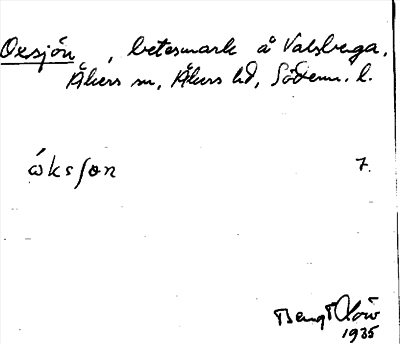 Oxsjön, betesmark å Valsberga,
Åkers sn, Åkers hd, Söderm. l.
óksʃɵn 7.
Bengt
1935